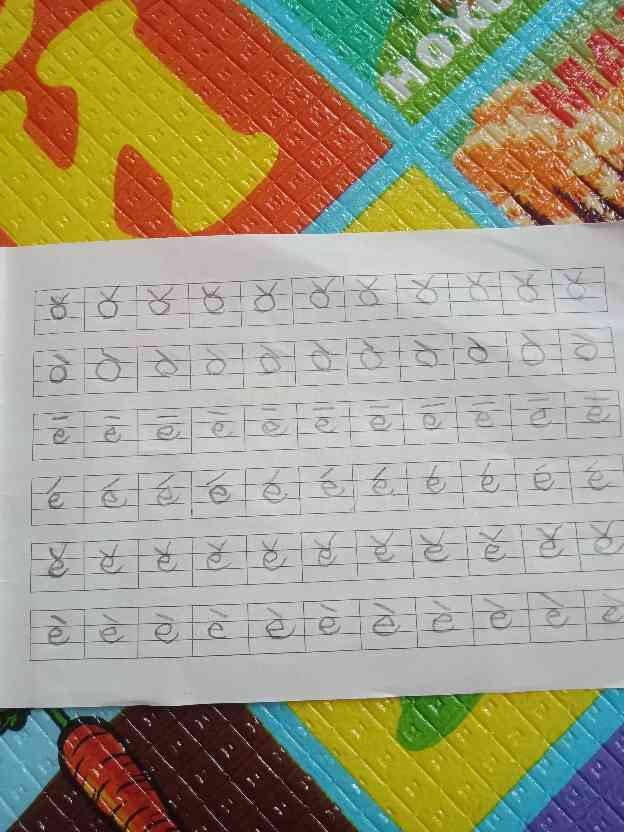 ǒ ǒ ǒ ǒ ǒ ǒ ǒ ǒ ǒ ǒ ǒ
ò ò ò ò ò ò ò ò ò ò ò
ē ē ē ē ē ē ē ē ē ē ē
é é é é é é é é é é é
ě ě ě ě ě ě ě ě ě ě ě
è è è è è è è è è è è